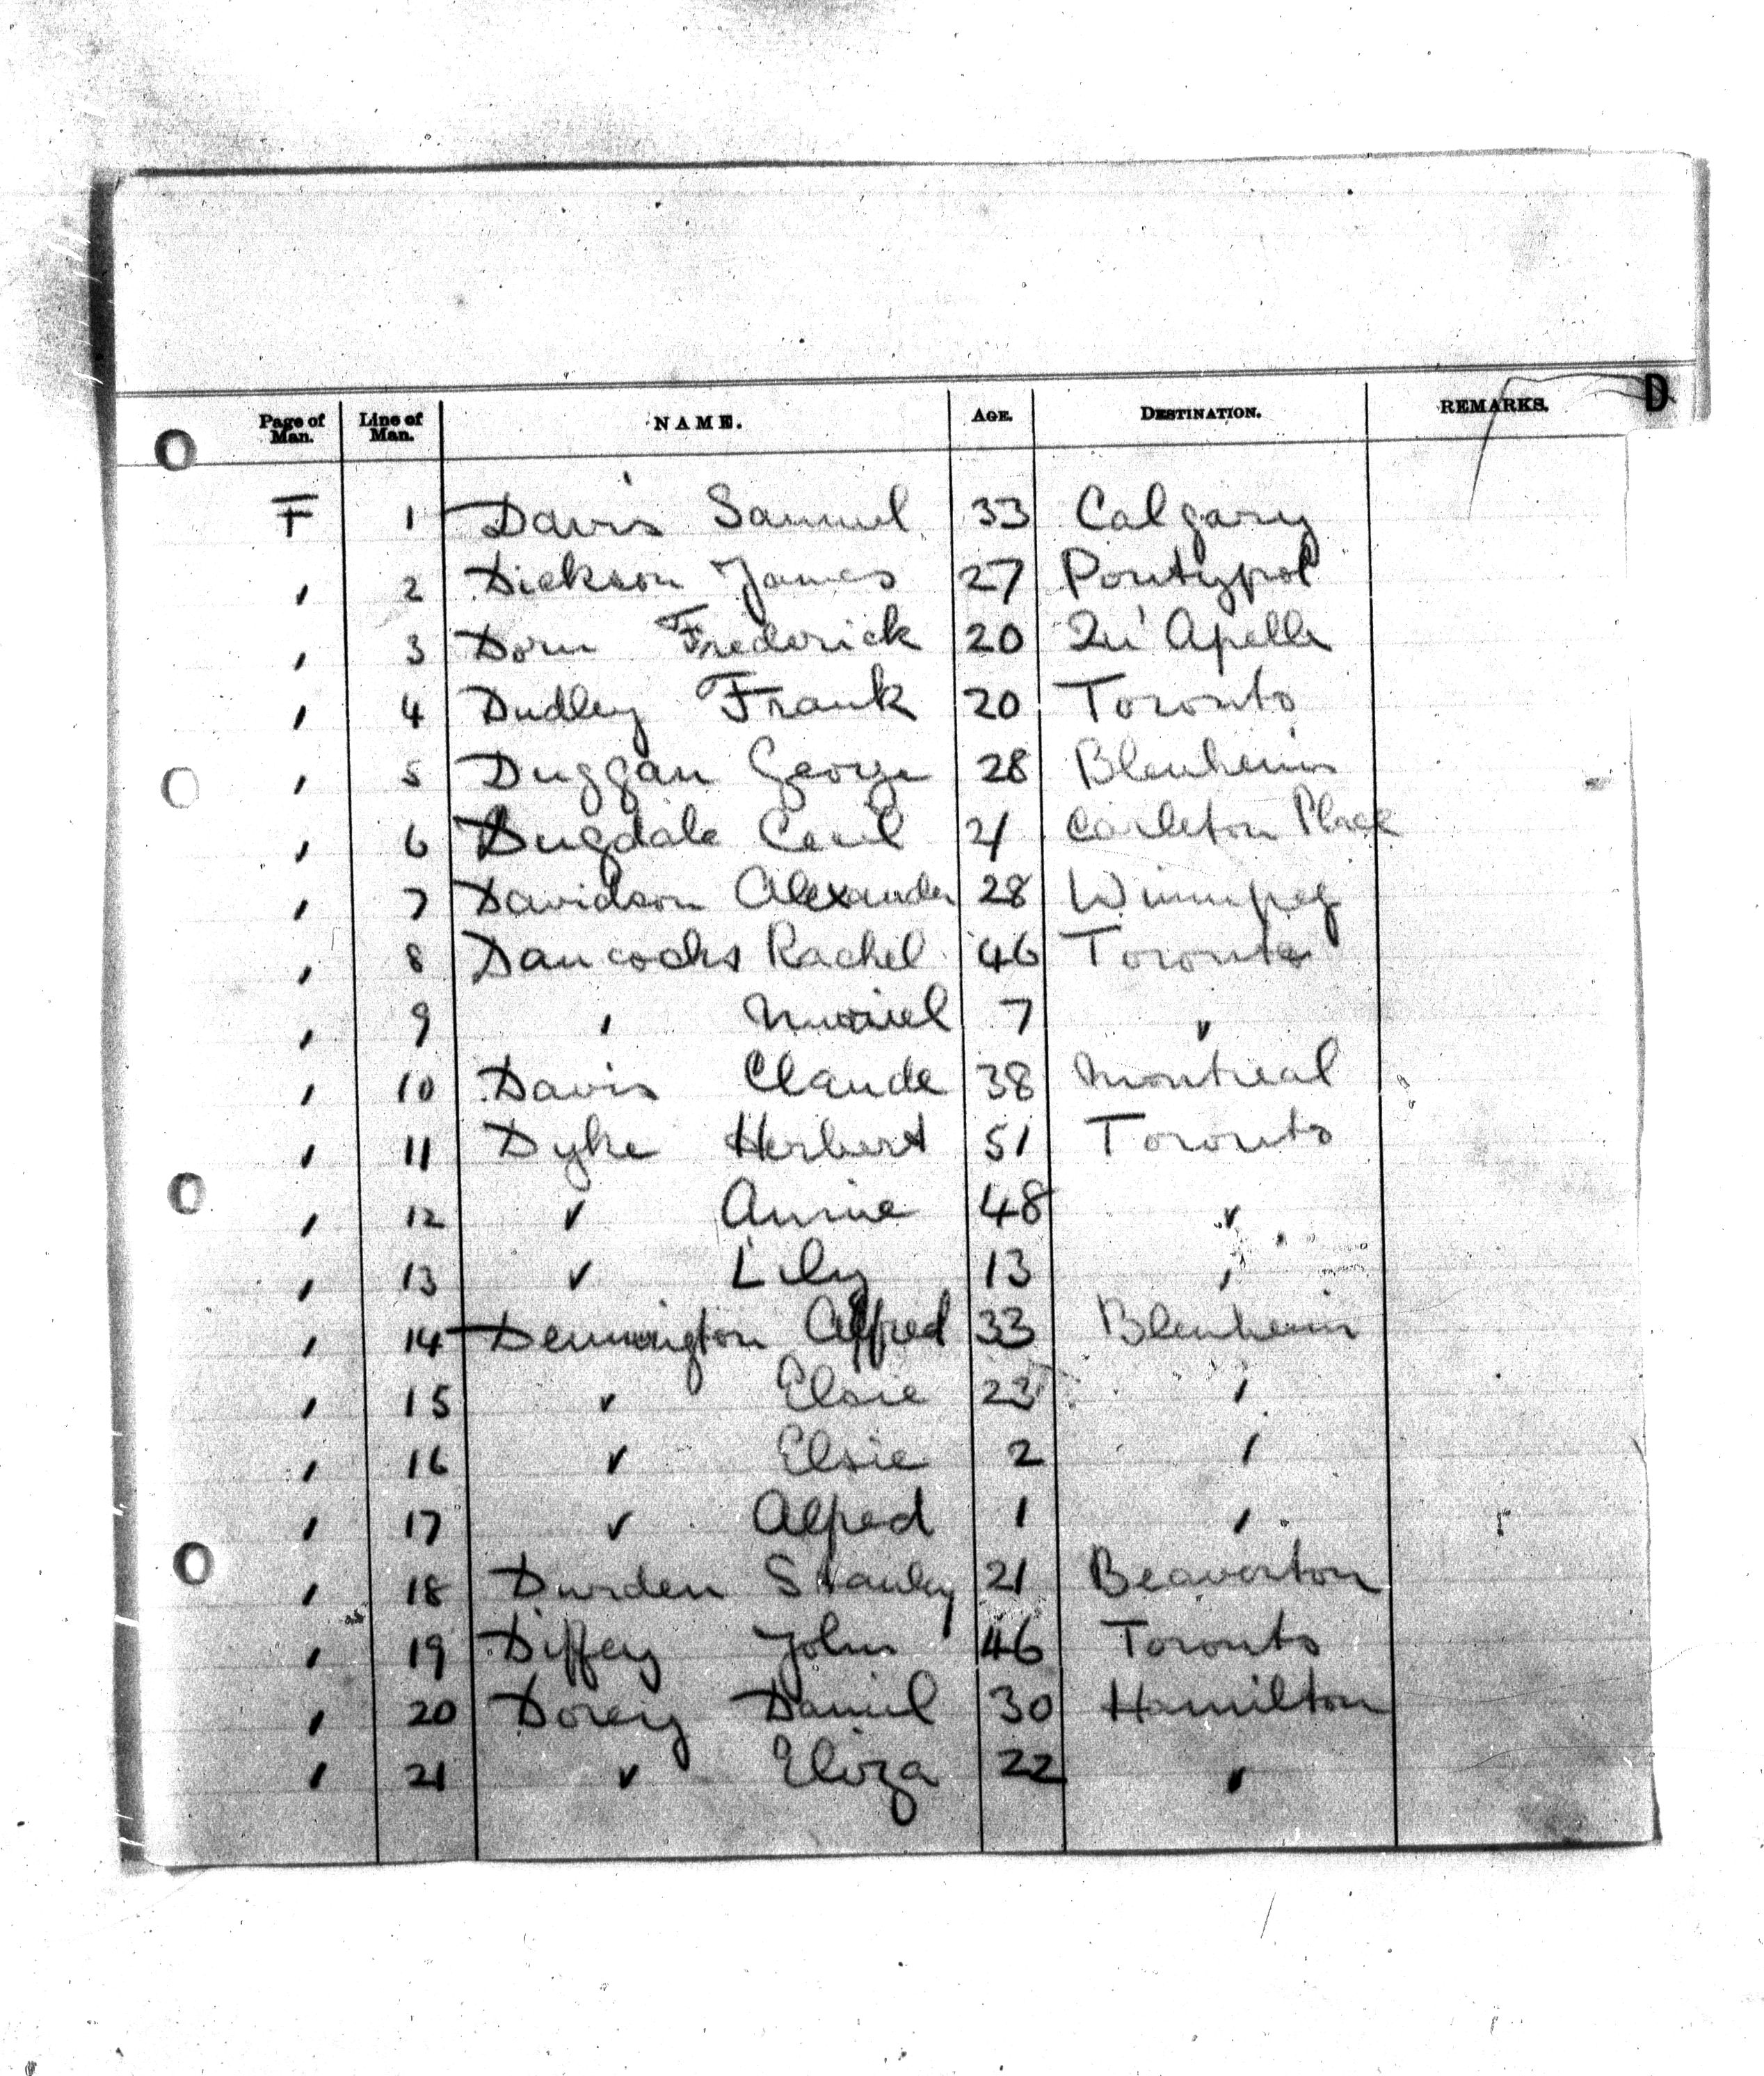 D
Page of Man. Line of Man. NAME. AGE. DESTINATION. REMARKS.
F 1 Davis Samuel 33 Calgary
" 2 Dickson James 27 Pontypol
" 3 Dorn Frederick 20 Qu'Apelle
" 4 Dudley Frank 20 Toronto
" 5 Duggan George 28 Blenheim
" 6 Dugdale Cecil 21 Carleton Place
" 7 Davidson Alexander 28 Winnipeg
" 8 Dancocks Rachel 46 Toronto
" 9 " Muriel 7 "
" 10 Davis Claude 38 Montreal
" 11 Dyke Herbert 51 Toronto
" 12 " Annie 48 "
" 13 " Lily 13 "
" 14 Dennington Alfred 33 Blenheim
" 15 " Elsie 23 "
" 16 " Elsie 2 "
" 17 " Alfred 1 "
" 18 Durden Stanley 21 Beaverton
" 19 Diffey John 46 Toronto
" 20 Dorey Daniel 30 Hamilton
" 21 " Eliza 22 "